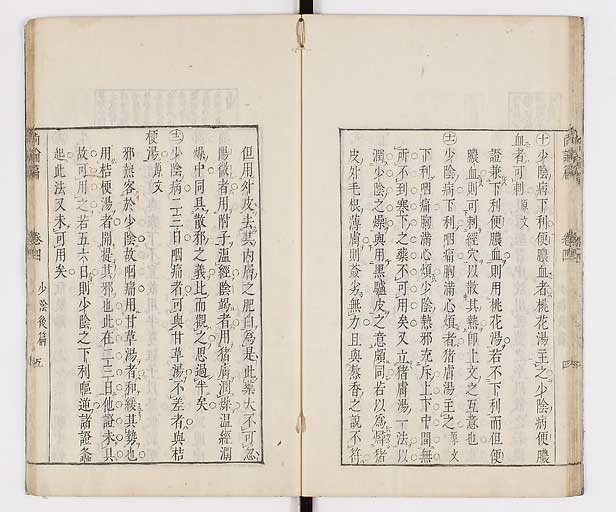 十少陰病下利便膿血者桃花湯主之少陰病便膿
血者可刺原文
證兼下利便膿血則用桃花湯若不下利而但便
膿血則可刺經穴以散其熱卽上文之互意也
十一少陰病下利咽痛胸滿心煩者猪膚湯主之原文
下利咽痛胸滿心煩少陰熱邪充斥上下中間無
所不到寒下之藥不可用矣又立猪膚湯一法以
潤少陰之燥與用黑驢皮之意頗同若以爲燖猪
皮外毛根薄膚則簽劣無力且與熬香之說不符
但用外皮去其內層之肥白爲是此藥大不可忽
陽微者用附子溫經陰竭者用猪膚潤燥溫經潤
燥中同具散邪之義比而觀之思過半矣
十二少陰病二三日咽痛者可與甘草湯不差者與桔
梗湯原文
邪熱客於少陰故咽痛用甘草湯者和緩其勢也
用桔梗湯者開提其邪也此在二三日他證未具
故可用之若五六日則少陰之下利嘔逆諸證蠭
起此法又未可用矣
尚論篇 卷四 少陰後篇 五
尚論篇 卷四